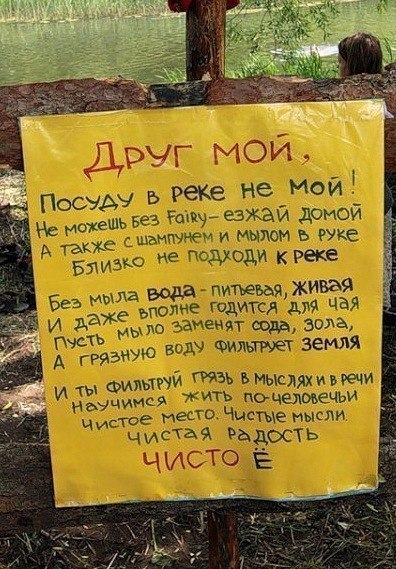 Друг мой,
Посуду в реке не мой!
Не можешь без Fairy – езжай домой
А также с шампунем и мылом в руке
Близко не подходи к реке
Без мыла вода - питьевая, живая
И даже вполне годится для чая
Пусть мыло заменят сода, зола,
А грязную воду фильтрует земля
И ты фильтруй грязь в мыслях и в речи
Научимся жить по-человечьи
Чистое место. Чистые мысли.
Чистая радость
Чисто Ё